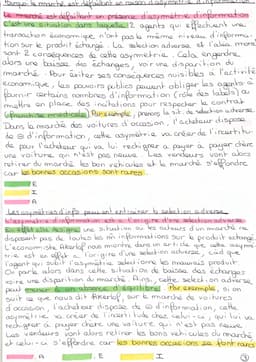 Pourquoi le marché est défaillant en raison d'asymétrie d'information
Le marché est défaillant en présence d'asymétrie d'information
C'est une situation dans laquelle 2 agents qui effectuent une
transaction économique n'ont pas le même niveau d'informa-
tion sur le produit échangé. La sélection adverse et l'aléa moral
sont 2 conséquences de cette asymétrie. Cela engendre
alors une baisse des échanges, voir une disparition du
marché. Pour éviter ses conséquences nuisibles à l'activité
économique, les pouvoirs publics peuvent obliger les agents à
fournir certains nombres d'information (rôle des labels) ou
mettre en place des incitations pour respecter le contrat
(franchise médicale). Par exemple, prenons la sit. de sélection adverse
Dans le marché des voitures d'occasion, l'acheteur dispose
de information, cette asymétrie va créer de l'incertitu-
de pour l'acheteur qui va lui rechigner à payer à payer chère
une voiture qui n'est pas neuve. Les vendeurs vont alors
retirer du marché les bons véhicules et le marché s'effondre,
car les bonnes occasions sont rares.
E
I
A
Les asymétries d'info peuvent entraîner la sélection adverse
L'asymétrie d'information est à l'origine d'une sélection adverse
En effet elle désigne une situation où les acteurs d'un marché ne
disposent pas de toutes les mêmes informations sur le produit échangé.
L'économiste Akerlof nous montre dans un article que cette asymé-
trie est en effet à l'origine d'une sélection adverse, càd que
l'agent qui subit l'asymétrie sélectionne les mauvais produit.
On parle alors dans cette situation de baisse des échanges
voire une disparition du marché. Ainsi, cette sélection adverse
peut mener à son absence d'équilibre. Par exemple, si on
suit ce que nous dit Akerlof, sur le marché de voitures
d'occasion, l'acheteur dispose de information, cette
asymétrie va créer de l'incertitude chez celui-ci, qui lui va
rechigner à payer chère une voiture qui n'est pas neuve.
Les vendeurs vont alors retirer les bons véhicules du marché
et celui-ci s'effondre car les bonnes occasions se font rares
A
E
I